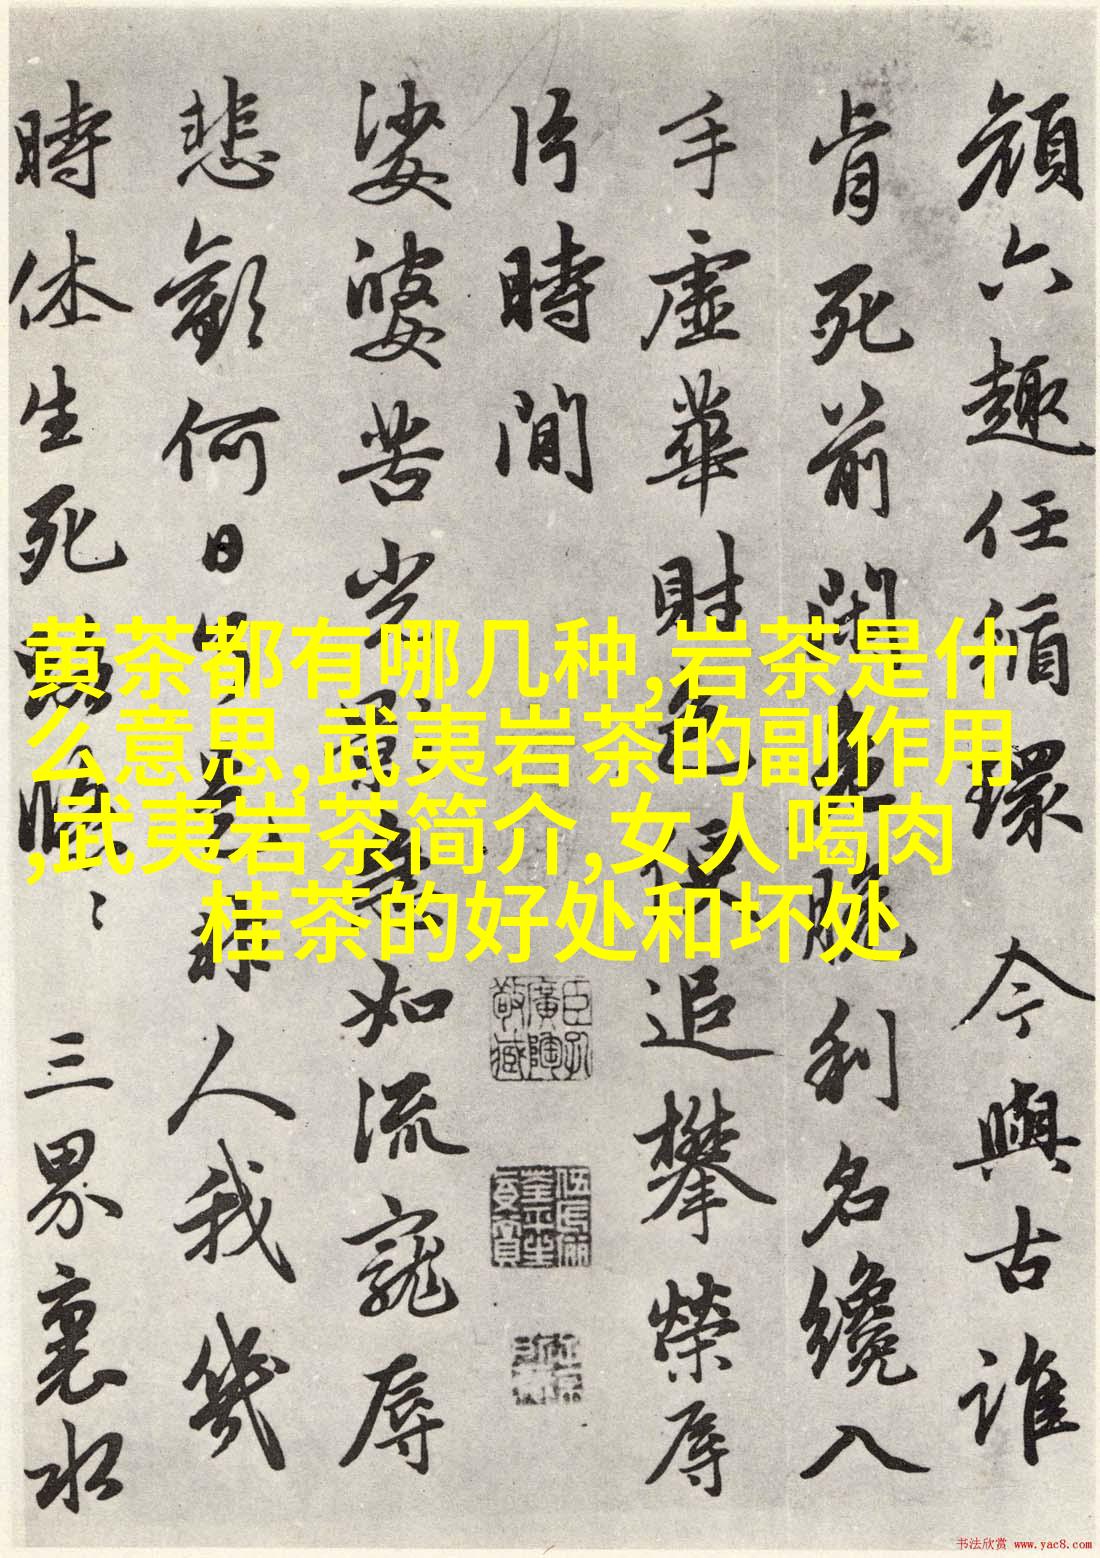 顔六趣任循環 今與古誰
肯死前閑 利名纔入
手虛華財色 追攀榮辱
片時間
娑婆苦光景 如流寵辱
悲歡何日 人我幾
時休生死 三界裏水
黄茶都有哪几种,岩茶是什
么意思,武夷岩茶的副作用
,武夷岩茶简介,女人喝肉
桂茶的好处和坏处
书法欣赏 www.yac8.com